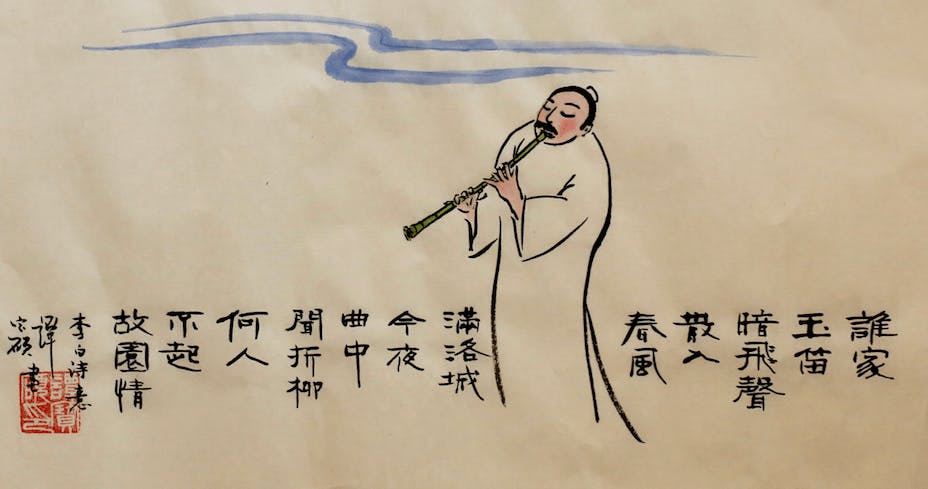 誰家
玉笛
暗飛聲
散入
春風
滿洛城
今夜
曲中
聞折柳
何人
不起
故園情
李白诗意